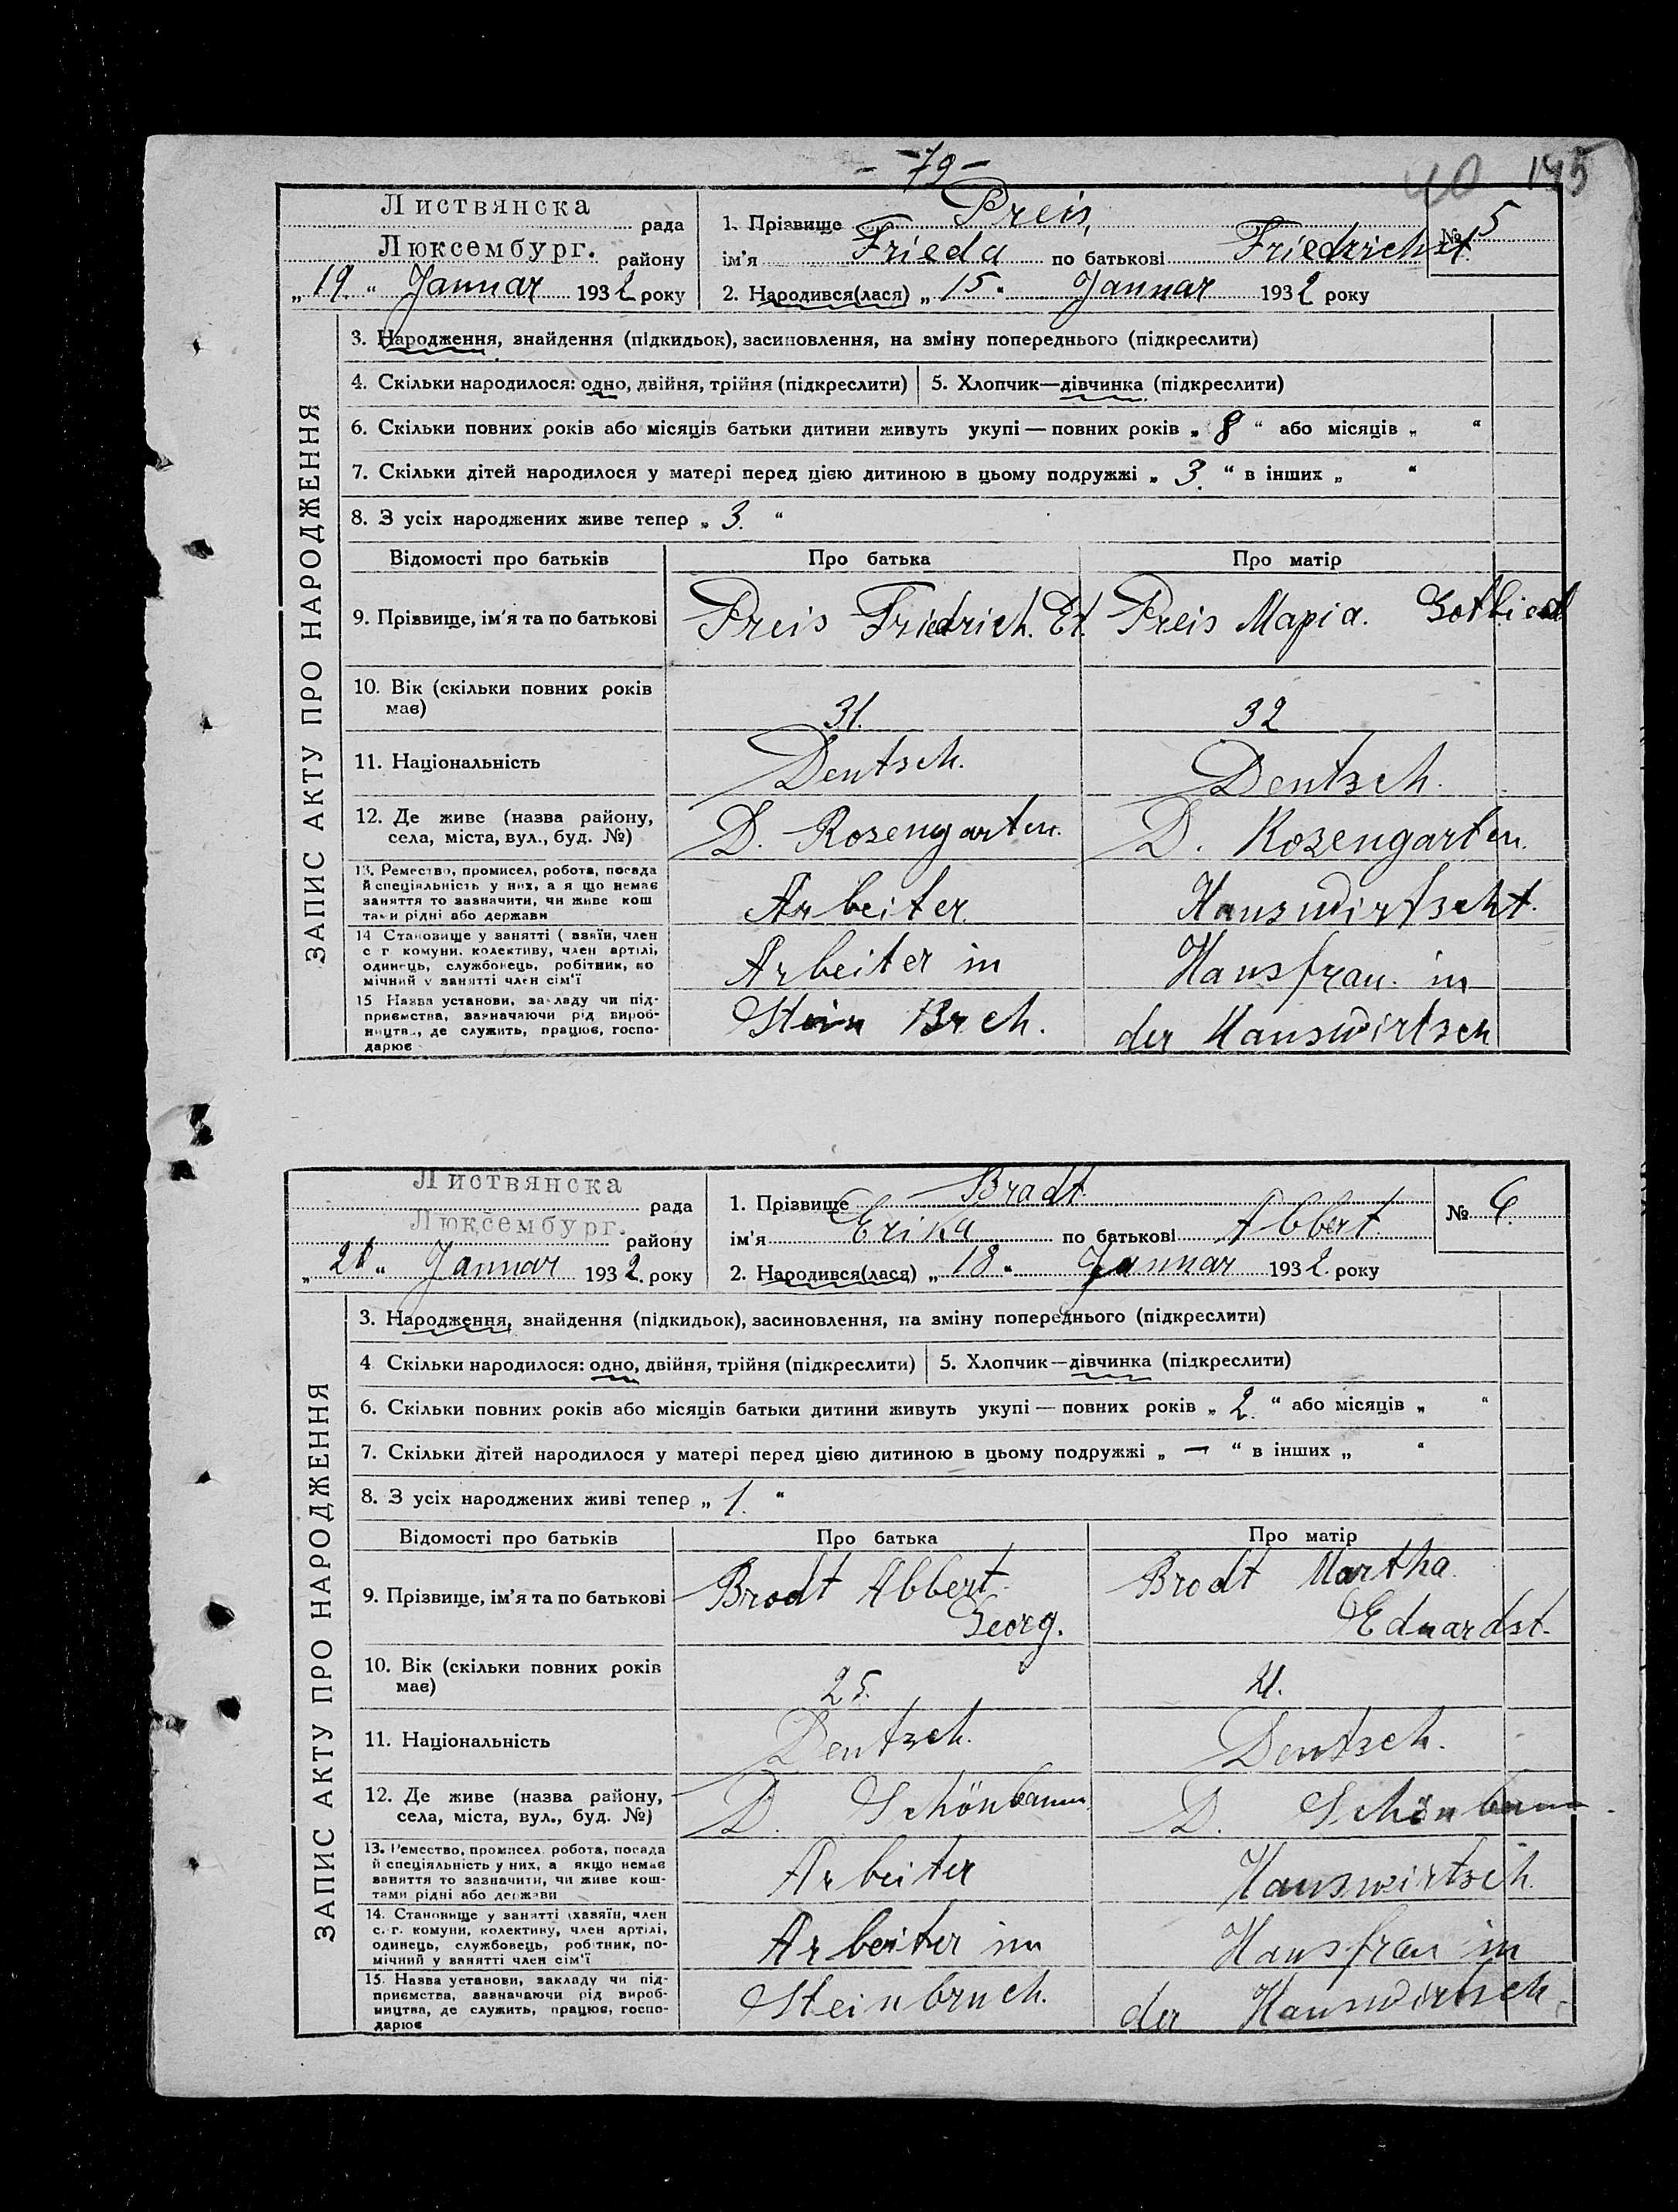 - 79 -
40 145
Листвянска рада
Люксембург. району
„ 19. “ Januar 1932 року
1. Прізвище Preis,
ім'я Frieda по батькові Friedrichst
№ 5
2. Народився(лася) „ 15 “ Januar 1932 року
ЗАПИС АКТУ ПРО НАРОДЖЕННЯ
3. Народження, знайдення (підкидьок), засиновлення, на зміну попереднього (підкреслити)
4. Скільки народилося: одно, двійня, трійня (підкреслити) 5. Хлопчик—дівчинка (підкреслити)
6. Скільки повних років або місяців батьки дитини живуть укупі — повних років „ 8 “ або місяців „ “
7. Скільки дітей народилося у матері перед цією дитиною в цьому подружжі „ 3. “ в інших „ “
8. З усіх народжених живе тепер „ 3. “
Відомості про батьків Про батька Про матір
9. Прізвище, ім'я та по батькові Preis Friedrich. Et. Preis Мариa.
10. Вік (скільки повних років має) 31. 32
11. Національність Deutsch. Deutsch.
12. Де живе (назва району, села, міста, вул., буд. №) D. Rosengarten. D. Rosengarten.
13. Ремество, промисел, робота, посада й спеціяльність у них, а я що немає заняття то зазначити, чи живе кош тами рідні або держави Arbeiter. Hauswirtscht.
14 Становище у занятті ( азяїн, член с г комуни, колективу, член артілі, одинець, службовець, робітник, по мічний у занятті член сім'ї Arbeiter in Hausfrau. in
15 Назва установи, закладу чи підприємства, зазначаючи рід виробництва, де служить, працює, господарює Stein Brch. der Hauswirtsch
Листвянска рада
Люксембург. району
„ 21 “ Januar 1932. року
1. Прізвище Bradt.
ім'я Erika по батькові Abbert.
№ 6.
2. Народився(лася) „ 18 “ Januar 1932. року
ЗАПИС АКТУ ПРО НАРОДЖЕННЯ
3. Народження, знайдення (підкидьок), засиновлення, на зміну попереднього (підкреслити)
4 Скільки народилося: одно, двійня, трійня (підкреслити) 5. Хлопчик—дівчинка (підкреслити)
6. Скільки повних років або місяців батьки дитини живуть укупі — повних років „ 2. “ або місяців „ “
7. Скільки дітей народилося у матері перед цією дитиною в цьому подружжі „ — “ в інших „ “
8. З усіх народжених живі тепер „ 1. “
Відомості про батьків Про батька Про матір
9. Прізвище, ім'я та по батькові Brodt Abbert. Georg. Brodt Martha. Eduardst.
10. Вік (скільки повних років має) 25. 21.
11. Національність Deutsch. Deutsch.
12. Де живе (назва району, села, міста, вул., буд. №) D. Schönbaum D. Schönbaum.
13. Ремество, промисел, робота, посада й спеціяльність у них, а якщо немає заняття то зазначити, чи живе коштами рідні або держави Arbeiter Hauswirtsch.
14. Становище у занятті (хазяїн, член с. г. комуни, колективу, член артілі, одинець, службовець, робітник, помічний у занятті член сім'ї Arbeiter in Hausfrau in
15. Назва установи, закладу чи підприємства, зазначаючи рід виробництва, де служить, працює, господарює Steinbruch. der Hauswirtsch.